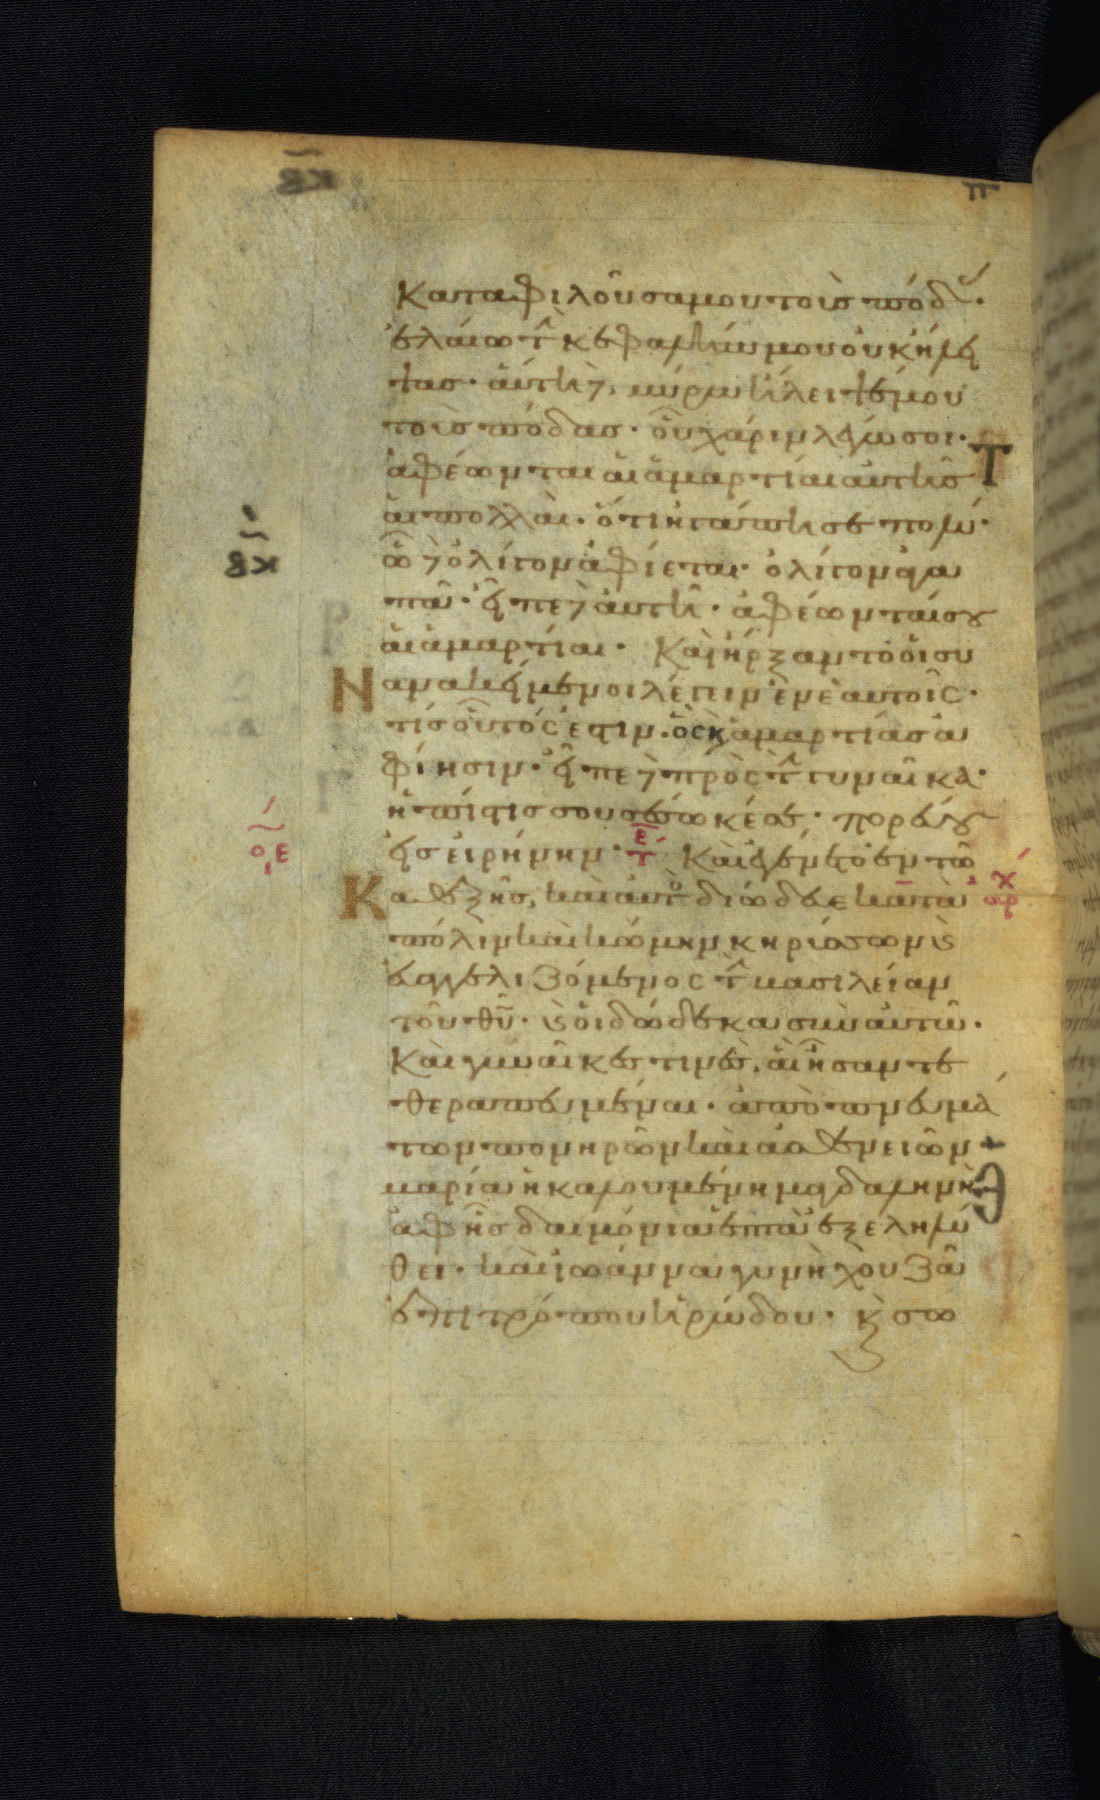 καταφιλοῦσα μου τοὺς πόδας·
ἐλαίω τὴν κεφαλήν μου οὐκ ἤλει
ψας· αὕτη δὲ μύρω ἤλειψέ μου
τοὺς πόδας· οὗ χάριν λέγω σοι·
ἀφέωνται αἱ ἁμαρτίαι αὐτῆς
αἱ πολλαί· ὅτι ἠγάπησε πολύ·
ὧ δὲ ὀλίγον ἀφίεται· ὀλίγον ἀγα
πᾶ· εἶπε δὲ αὐτῆ· ἀφέωνταί σου
αἱ ἁμαρτίαι· Καὶ ἤρξαντο οἱ συ
Νανακείμενοι λέγειν ἐν ἑαυτοῖς·
τίς οὗτός ἐστιν· ὃς κ ἁμαρτίας ἀ
φίησιν· εἶπε δὲ πρὸς τὴν γυναῖκα·
ἡ πίστις σου σέσωκέ σε· πορεύου
εἰς εἰρήνην· τε Καὶ ἐγένετο ἐν τῶ
Καθεξῆς, καὶ αὐτὸ διώδευε κατὰ
πόλιν καὶ κώμην κηρύσσων κ
εὐαγγελιζόμενος τὴν βασιλείαν
τοῦ θῦ· κ οἱ δώδεκα σὺν αὐτῶ·
Καὶ γυναῖκες τινὲς, αἳ ἦσαν τε
θεραπευμέναι· ἀπὸ πνευμά
των πονηρῶν καὶ ἀσθενειῶν·
μαρία ἡ καλουμένη μαγδαληνὴ
ἀφ ἧς δαιμόνια ἑπτὰ ἐξεληλύ
θει· καὶ ἰωάννα γυνὴ χουζᾶ
ἐπιτρόπου ἡρώδου· κ σω